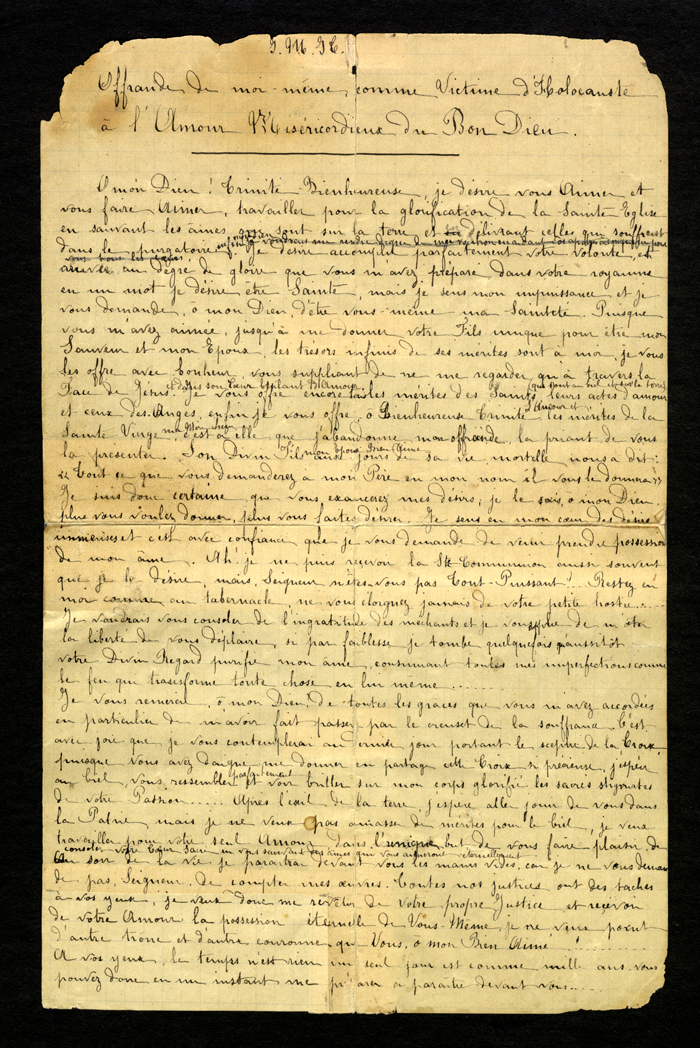 J. M. J. T.
Offrande de moi-même, comme Victime d'Holocauste
à l'Amour Miséricordieux du Bon Dieu.
O mon Dieu ! Trinité Bienheureuse, je désire vous Aimer et
vous faire Aimer, travailler pour la glorification de la Sainte Eglise
en sauvant les âmes qui sont sur la terre et en délivrant celles qui souffrent
dans le purgatoire. Je désire accomplir parfaitement votre volonté et
arriver au degré de gloire que vous m'avez préparé dans votre royaume
en un mot je désire être Sainte, mais je sens mon impuissance et je
vous demande, ô mon Dieu, d'être vous-même ma Sainteté. Puisque
vous m'avez aimée, jusqu'à me donner votre Fils unique pour être mon
Sauveur et mon Epoux, les trésors infinis de ses mérites sont à moi, je vous
les offre avec bonheur, vous suppliant de ne me regarder qu'à travers la
Face de Jésus et dans son Coeur brûlant d'Amour. Je vous offre encore tous les mérites des Saints (qui sont au Ciel et sur la terre) leurs actes d'amour
et ceux des Anges, enfin je vous offre, ô Bienheureuse Trinité l'Amour et les mérites de la
Sainte Vierge ma Mère chérie c'est à elle que j'abandonne mon offrande, la priant de vous
la présenter. Son Divin Fils, mon Epoux Bien-Aimé, aux jours de sa vie mortelle nous a dit :
"Tout ce que vous demanderez à mon Père en mon nom il vous le donnera"
Je suis donc certaine que vous exaucerez mes désirs ; je le sais, ô mon Dieu,
plus vous voulez donner, plus vous faites désirer. Je sens en mon coeur des désirs
immenses et c'est avec confiance que je vous demande de venir prendre possession
de mon âme. Ah ! je ne puis recevoir la Ste Communion aussi souvent
que je le désire, mais, Seigneur n'êtes-vous pas Tout-Puissant ?... Restez en
moi comme au tabernacle, ne vous éloignez jamais de votre petite hostie.....
Je voudrais vous consoler de l'ingratitude des méchants et je vous supplie de m'ôter
la liberté de vous déplaire, si par faiblesse je tombe quelquefois qu'aussitôt
votre Divin Regard purifie mon âme, consumant toutes mes imperfections comme
le feu qui transforme toute chose en lui-même.....
Je vous remercie, ô mon Dieu, de toutes les grâces que vous m'avez accordées
en particulier de m'avoir fait passer par le creuset de la souffrance. C'est
avec joie que je vous contemplerai au dernier jour portant le sceptre de la Croix
puisque vous avez daigné me donner en partage cette Croix si précieuse, j'espère
au Ciel, vous ressembler parfaitement et voir briller sur mon corps glorifié les sacrés stigmates
de votre Passion..... Après l'exil de la terre, j'espère aller jouir de vous dans
la Patrie, mais je ne veux pas amasser de mérites pour le Ciel, je veux
travailler pour votre seul Amour, dans l'unique but de vous faire plaisir de
consoler votre Coeur Sacré en vous sauvant des âmes qui vous aimeront éternellement
Au soir de la vie je paraîtrai devant vous les mains vides, car je ne vous demande
de pas, Seigneur de compter mes oeuvres. Toutes nos justices ont des taches
à vos yeux, je veux donc me revêtir de votre propre Justice et recevoir
de votre Amour la possession éternelle de Vous-Même, je ne veux point
d'autre trône et d'autre couronne que Vous, ô mon Bien Aimé !
A vos yeux, le temps n'est rien un seul jour est comme mille ans, vous
pouvez donc en un instant me préparer à paraître devant vous.....